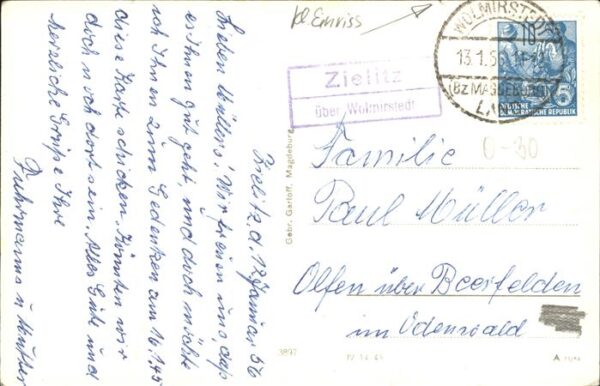 kl Einriss
WOLMIRSTEDT
13.1.56
(BZ MAGDEBURG)
DEUTSCHE
DEMOKRATISCHE REPUBLIK
5
Zielitz
über Wolmirstedt
0-30
Familie
Paul Müller
Olfen über Beerfelden
im Odenwald
Gebr. Garloff, Magdeburg
3897
IV-14-45
Zielitz, d. 12. Januar 56
Lieben Müllers! Wir freuen uns, daß
es Ihnen gut geht, und auch möchte
ich Ihnen zum Gedenken am 16.1.45
diese Karte schicken. Könnten wir
doch noch dort sein. Alles Gute und
herzliche Grüße Ihre
u. Mutter